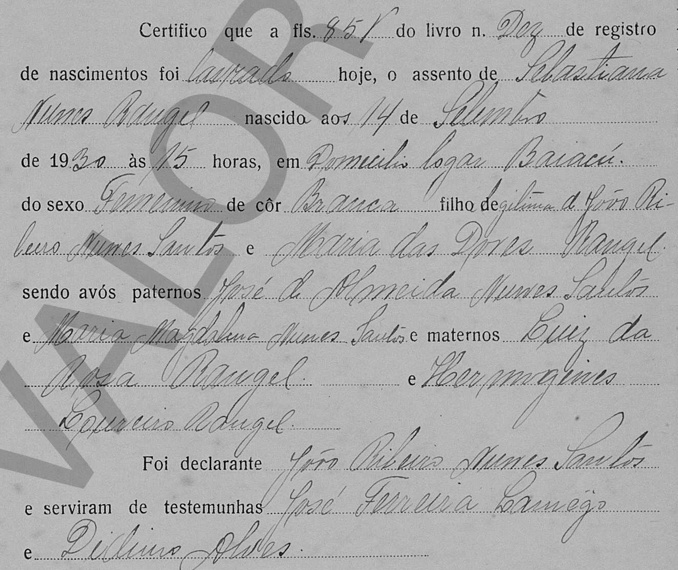 Certifico que a fls. 85V do livro n. Dez de registro
de nascimentos foi lavrado hoje, o assento de Sebastiana
Nunes Rangel nascido aos 14 de Setembro
de 1930 às 15 horas, em Domicilio logar Baiacú.
do sexo Femenino de côr Branca filho legitima de João Ri-
beiro Nunes Santos e Maria das Dores Rangel.
sendo avós paternos José de Almeida Nunes Santos
e Maria Magdalena Nunes Santos e maternos Luiz da
Rosa Rangel. e Hermogenes
Loureiro Rangel.
Foi declarante João Ribeiro Nunes Santos
e serviram de testemunhas José Ferreira Lamego
e Didimo Alves.
VALOR